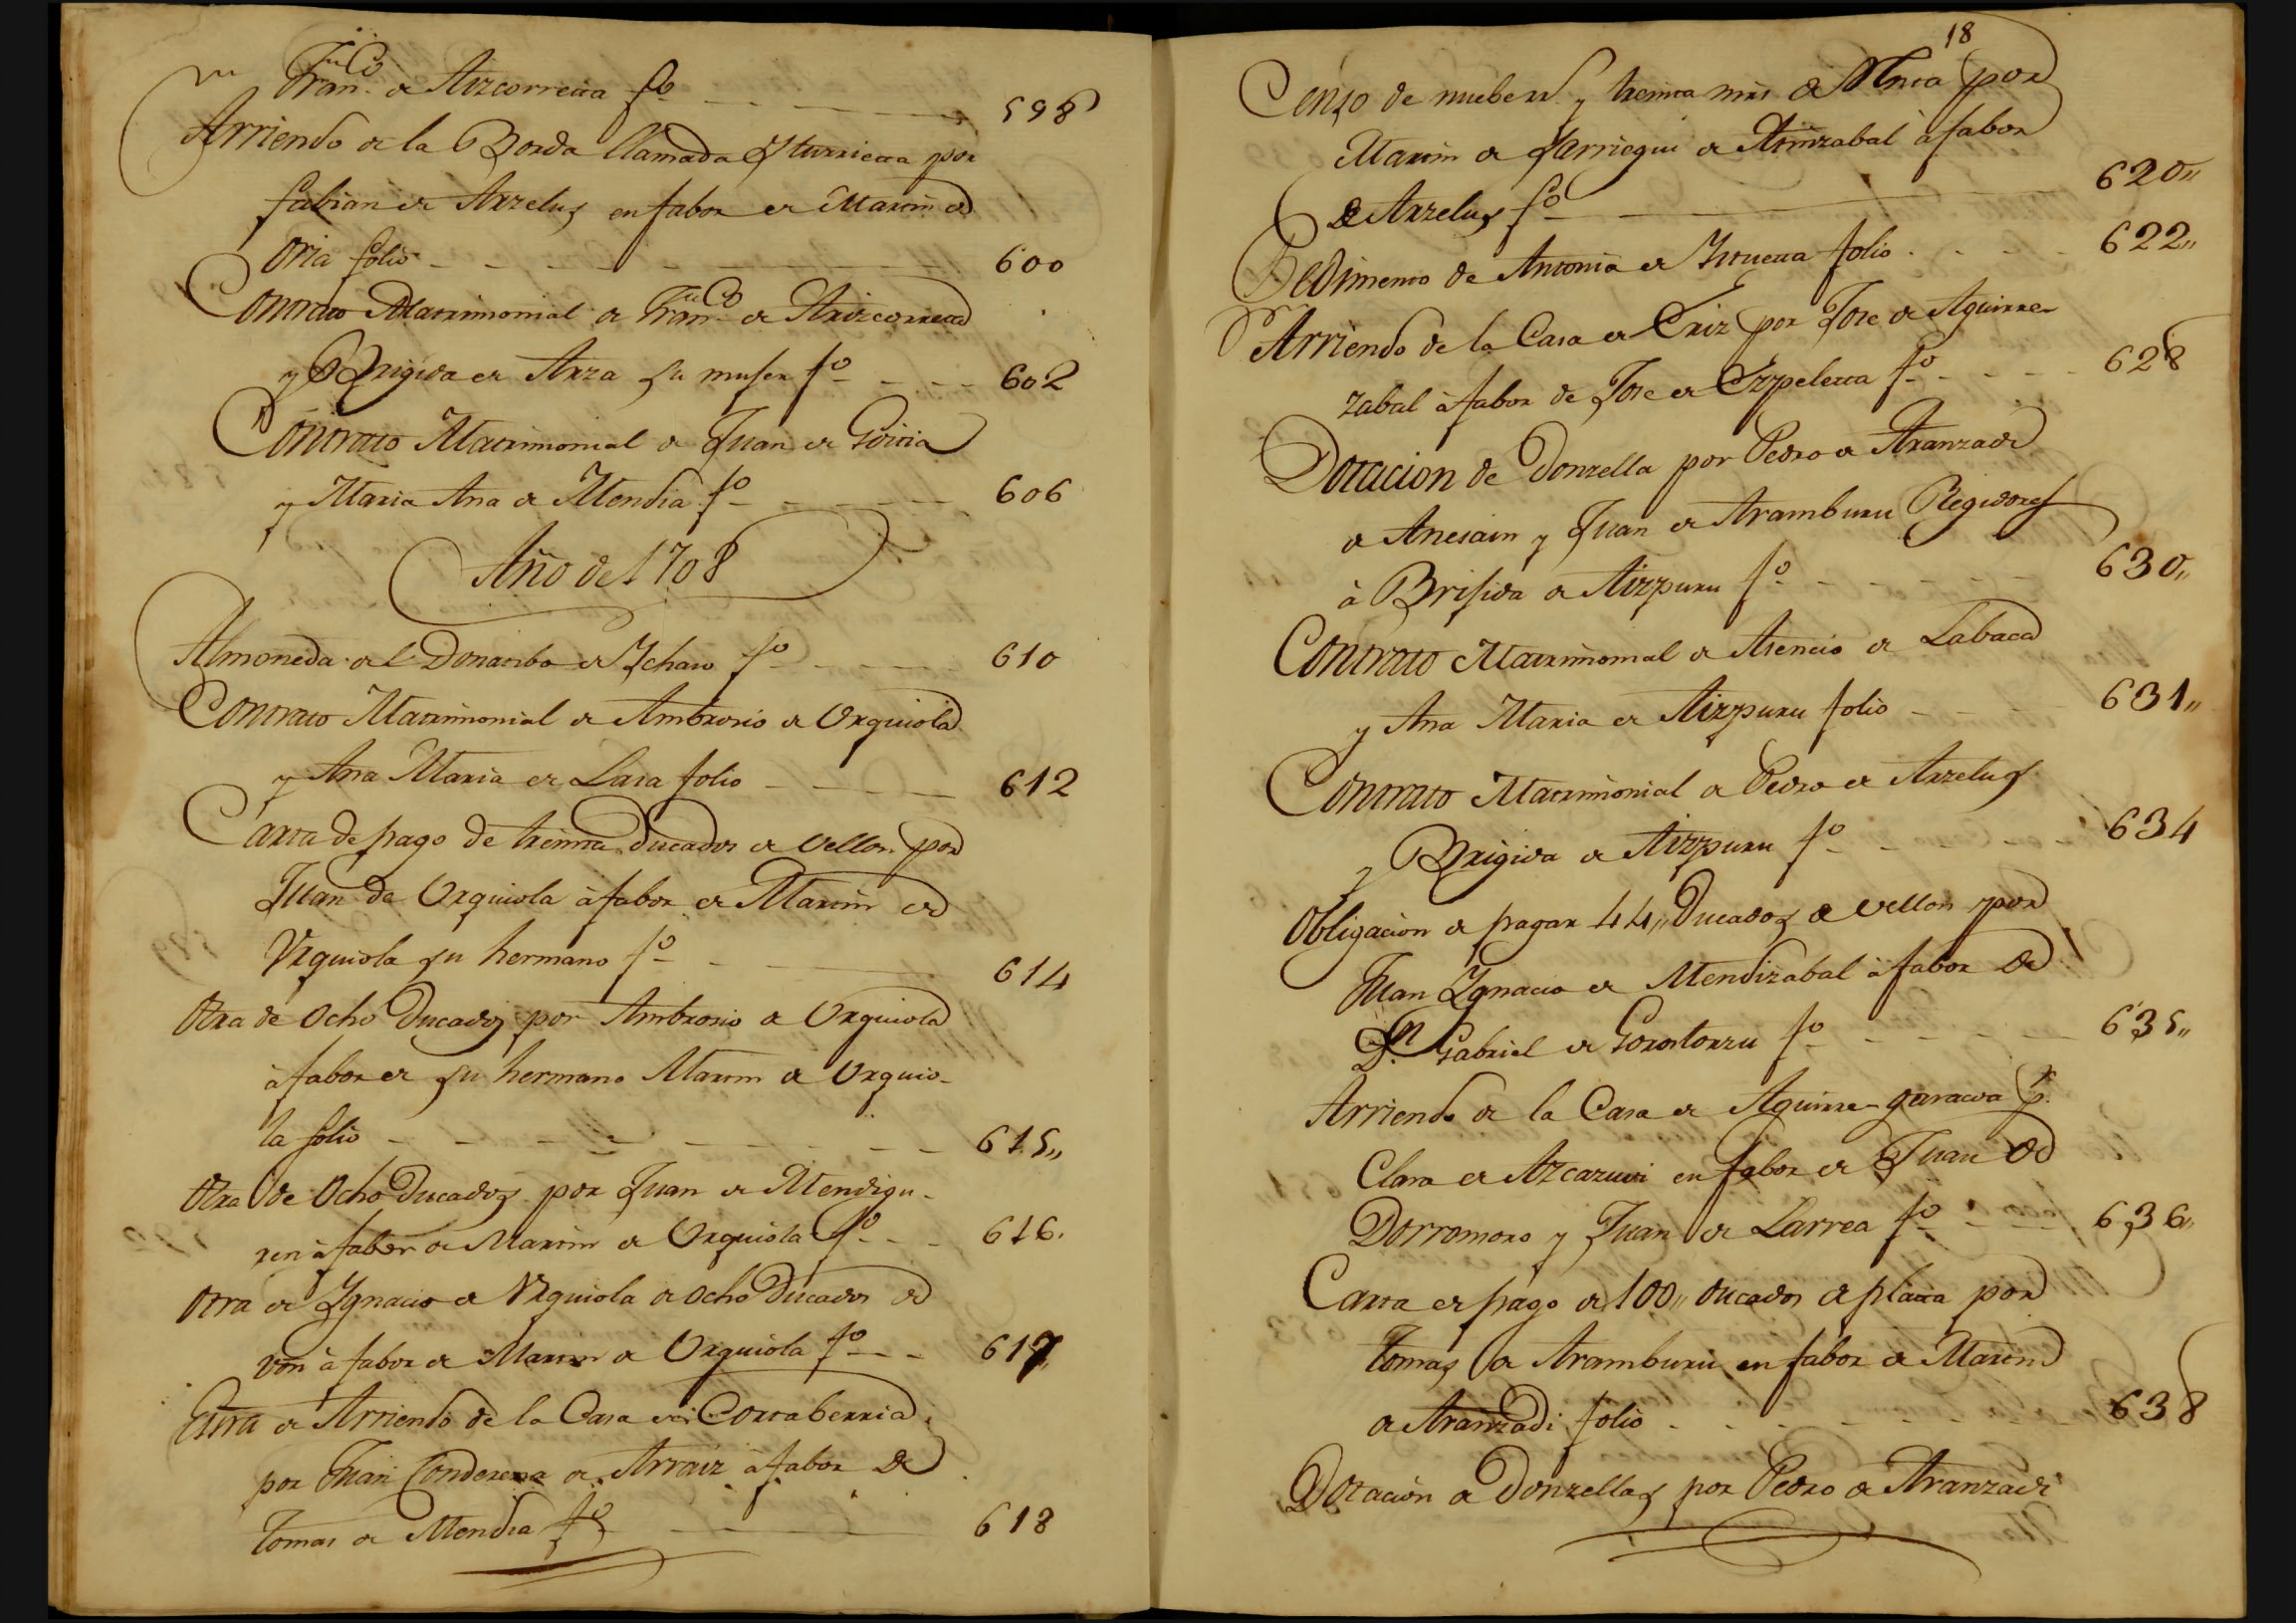 Franco. de Aizcorreta fo 598
Arriendo de la Borda llamada Yturrieta por
fabian de Arzelus en fabor de Martin de
Oria folio 600
Contrato Matrimonial de Franco. de Arizcorreta
y Brigida de Arza su muger fo 602
Contrato Matrimonial de Juan de Goitia
y Maria Ana de Mendia fo 606
Año de 1708
Almoneda del Donatibo de Ychaso fo 610
Contrato Matrimonial de Ambrosio de Urquiola
y Ana Maria de Lasa folio 612
Carta de pago de treinta ducados de vellon por
Juan de Urquiola à fabor de Martin de
Urquiola su hermano fo 614
Otra de Ocho Ducados por Ambrosio de Urquiola
à fabor de su hermano Martin de Urquio-
la folio 615,,
Otra de Ocho Ducados por Juan de Mendigu-
ren à fabor de Martin de Urquiola fo 616.
Otra de Ygnacio de Urquiola de ocho Ducados de
von à fabor de Martin de Urquiola fo 617,,
Escra de Arriendo de la Casa de Cortaberria
por Juan de Arraiz à fabor de
Tomas de Mendia fo 618
18
Censo de nuebe rs. y treinta mrs de Renta por
Martin de Jarriegui de Arinzabal à fabor
de Arzelus fo 620,,
Pedimento de Antonia de Yrueta folio 622,,
Arriendo de la Casa de Eriz por Jose de Aguirre
zabal à fabor de Jose de Ezpeleta fo 628
Dotacion de Donzella por Pedro de Aranzadi
de Anesain y Juan de Aramburu Regidores
à Brijida de Aizpuru fo 630,,
Contrato Matrimonial de Asencio de Labaca
y Ana Maria de Aizpuru folio 631,,
Contrato Matrimonial de Pedro de Arzelus
y Brigida de Aizpuru fo 634
Obligacion de pagar 44,, Ducados de vellon por
Juan Ygnacio de Mendizabal à fabor de
Dn. Gabriel de Gorostorzu fo 635,,
Arriendo de la Casa de Aguirre garacoa p.
Clara de Azcazuri en fabor de Juan de
Dorromoro y Juan de Larrea fo 636,,
Carta de pago de 100,, ducados de plata por
Tomas de Aramburu en fabor de Martin
de Aranzadi folio 638
Dotacion de Donzellas por Pedro de Aranzadi